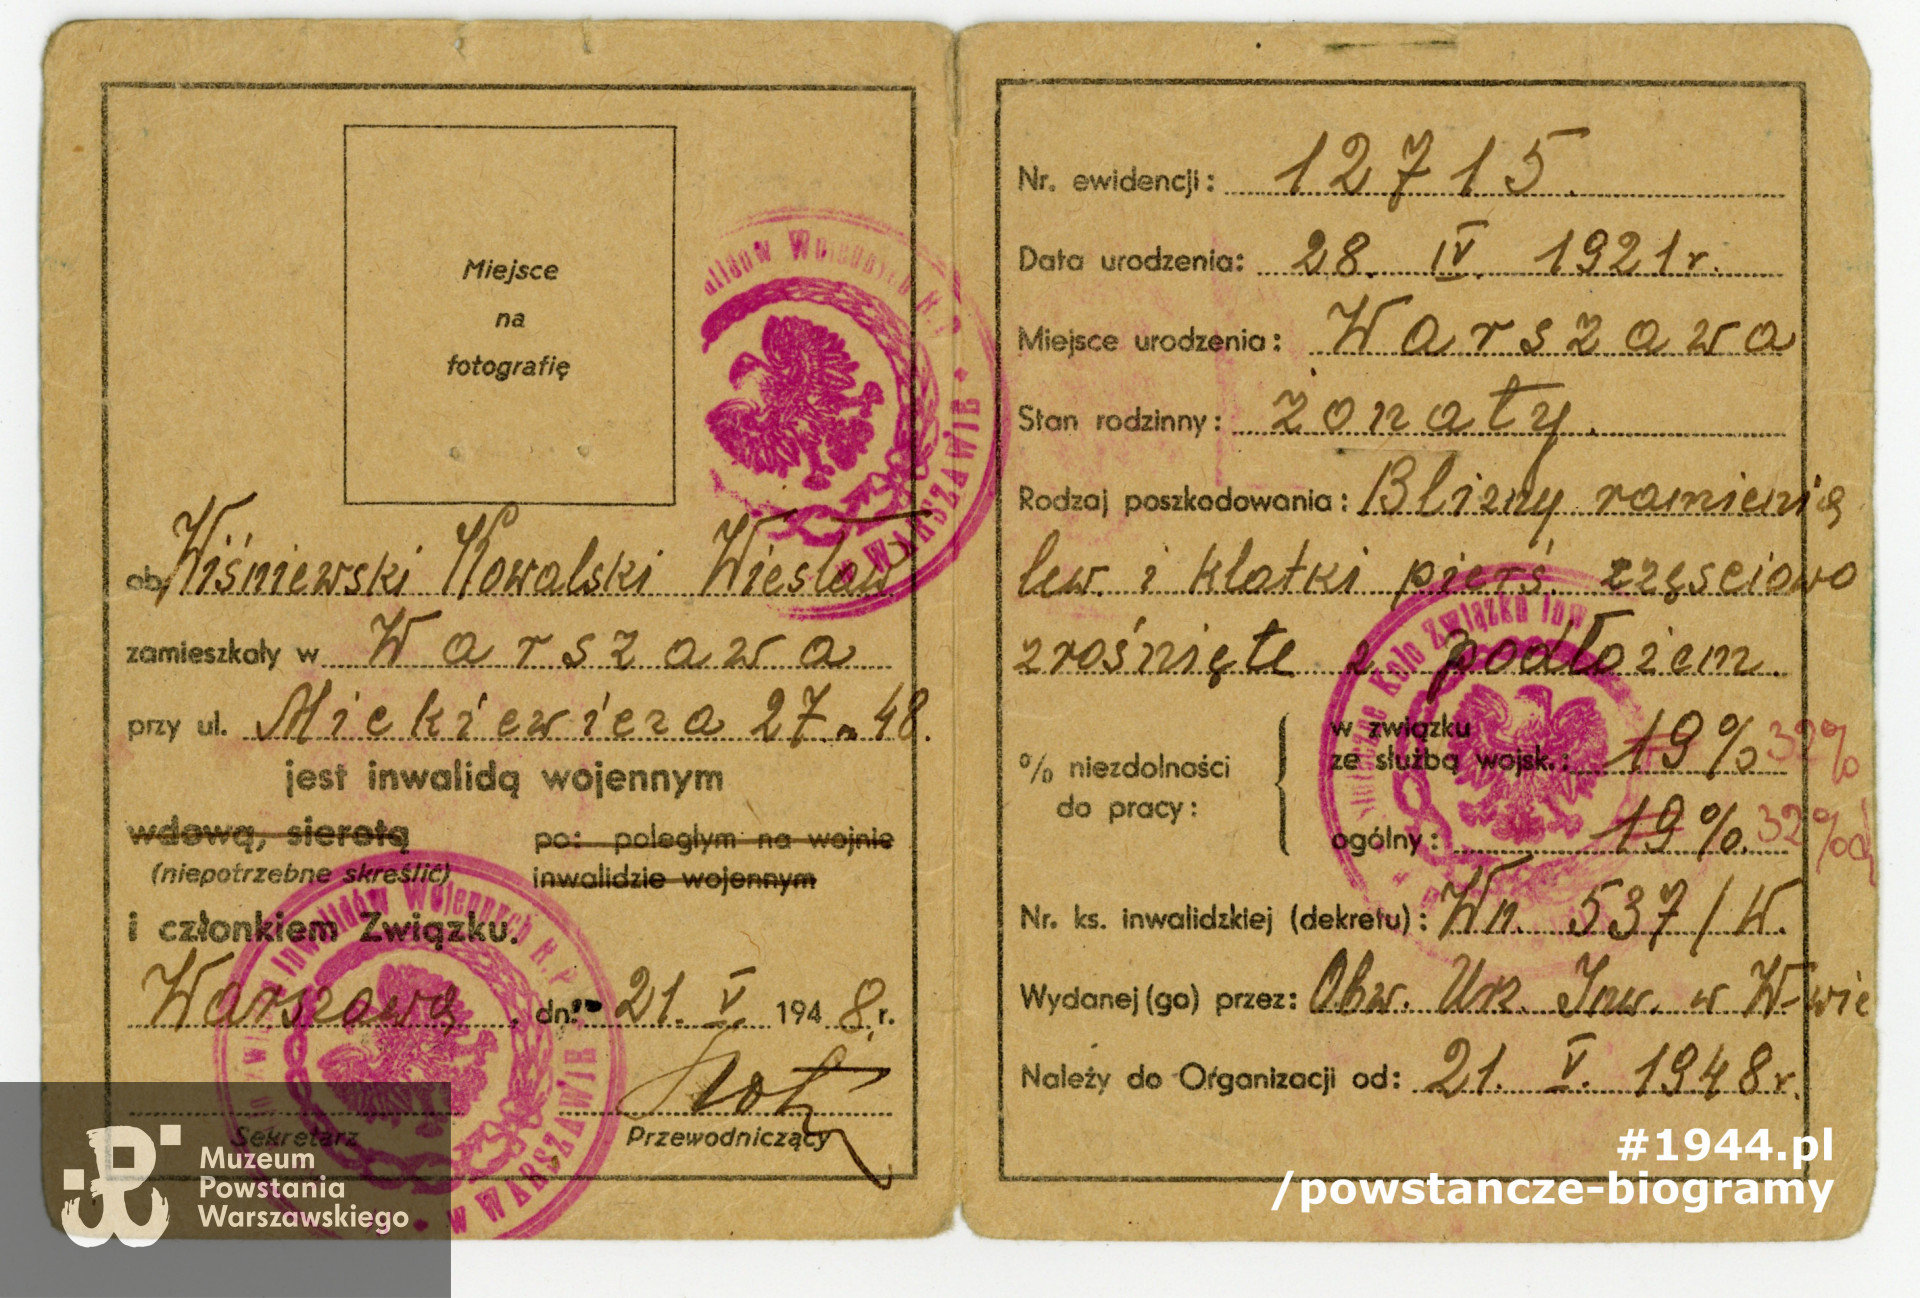 Miejsce
na
fotografię
ob. Wiśniewski Kowalski Wiesław
zamieszkały w Warszawa
przy ul. Mickiewicza 27 m 48.
jest inwalidą wojennym
wdową, sierotą po: poległym na wojnie
(niepotrzebne skreślić) inwalidzie wojennym
i członkiem Związku.
Warszawa, dn. 21. V 1948 r.
Sekretarz Przewodniczący
Inwalidów Wojennych R.P. w WARSZAWIE
alidów Wojennych R.P. w WARSZAWIE
Nr. ewidencji: 12715.
Data urodzenia: 28. IV. 1921 r.
Miejsce urodzenia: Warszawa
Stan rodzinny: żonaty.
Rodzaj poszkodowania: Blizny ramienia
lew. i klatki pierś. częściowo
zrośnięte z podłożem.
% niezdolności do pracy:
w związku
ze służbą wojsk.: 19% 32%
ogólny: 19%. 32%
Nr. ks. inwalidzkiej (dekretu): Wn. 537/W.
Wydanej (go) przez: Obw. Urz. Inw. w W-wie
Należy do Organizacji od: 21. V. 1948 r.
Koło Związku Inw
Muzeum
Powstania
Warszawskiego
#1944.pl
/powstancze-biogramy